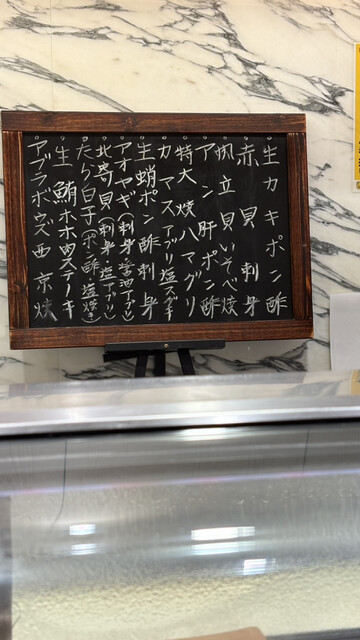 生カキポン酢
赤貝刺身
帆立貝いそべ焼
アン肝ポン酢
特大焼ハマグリ
カマスアブリ塩スダチ
生蛸ポン酢刺身
アオヤギ(刺身醤油アブリ)
北寄貝(刺身塩アブリ)
たら白子(ポン酢塩焼き)
生鮪ホホ肉ステーキ
アブラボウズ西京焼